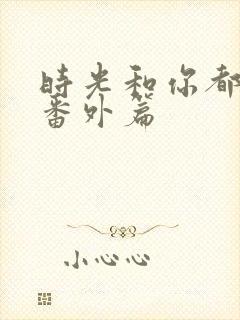 時光和你都
番外篇
小心心